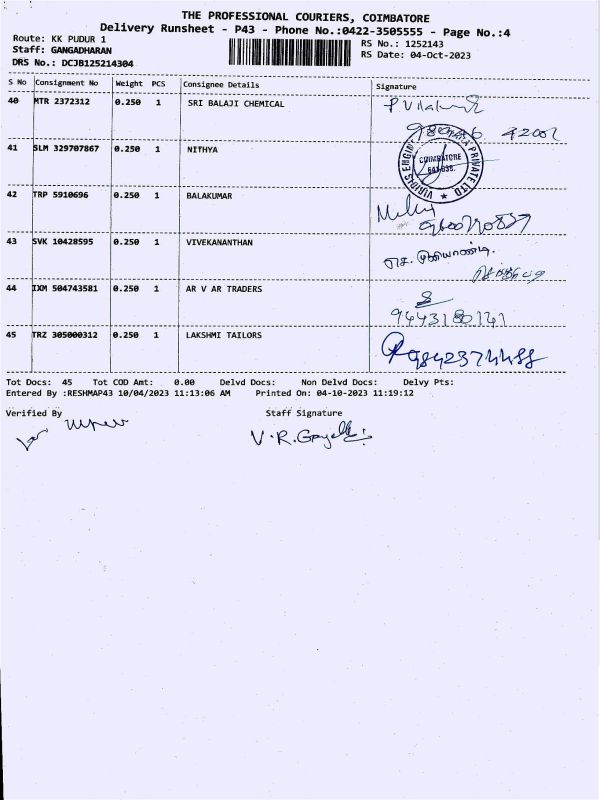 THE PROFESSIONAL COURIERS, COIMBATORE
Delivery Runsheet - P43 - Phone No.:0422-3505555 - Page No.:4
Route: KK PUDUR 1 RS No.: 1252143
Staff: GANGADHARAN RS Date: 04-Oct-2023
DRS No.: DCJB125214304
S No Consignment No Weight PCS Consignee Details Signature
40 MTR 2372312 0.250 1 SRI BALAJI CHEMICAL
41 SLM 329707867 0.250 1 NITHYA
COIMBATORE
PRIVATE LTD
42 TRP 5910696 0.250 1 BALAKUMAR
43 SVK 10428595 0.250 1 VIVEKANANTHAN
44 IXM 504743581 0.250 1 AR V AR TRADERS
9443180141
45 TRZ 305000312 0.250 1 LAKSHMI TAILORS
9842374488
Tot Docs: 45 Tot COD Amt: 0.00 Delvd Docs: Non Delvd Docs: Delvy Pts:
Entered By :RESHMAP43 10/04/2023 11:13:06 AM Printed On: 04-10-2023 11:19:12
Verified By Staff Signature
V.R.